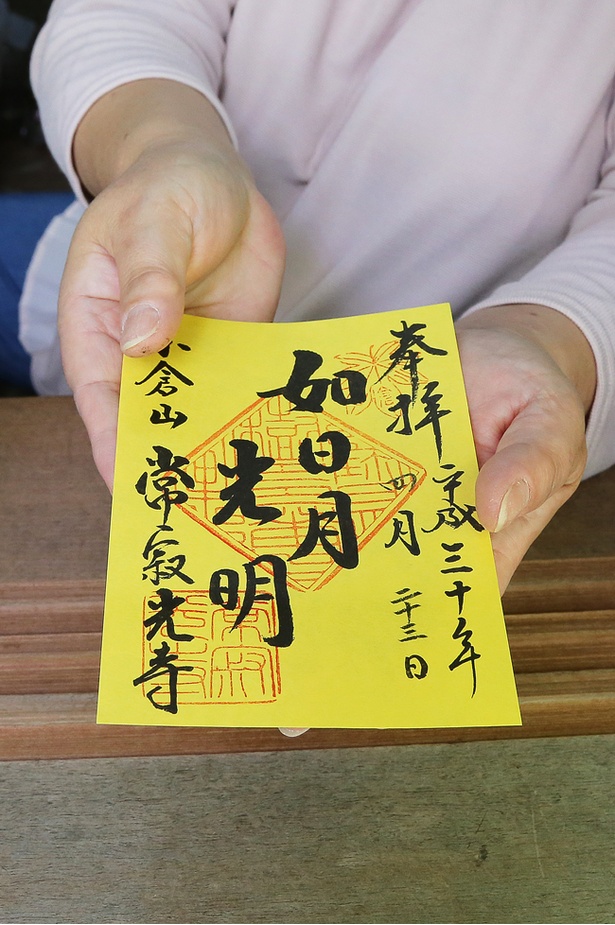 奉拝 平成三十年
四月 二十三日
如日月
光明
小倉山 常寂光寺
常寂光寺